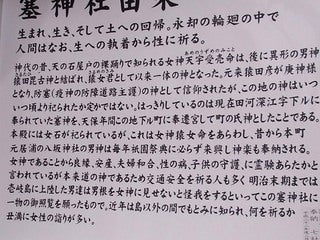 塞神社由来
生まれ、生き、そして土への回帰。永却の輪廻の中で
人間はなお、生への執着から性に祈る。
神代の昔、天の石屋戸の裸踊りで知られる女神天宇受売命は、後に異形の男神
猿田昆古神と結ばれ、猿女君として以来一体の神となった。元来猿田彦が庚申様
となり、防塞(疫神の防障道路主護)の神として信仰されたが、この地の神はいつ
いつ頃より祀られたか定かではない。はっきりしているのは現在田河深江字下ルに
奉られていた塞神を、天保年間この地下町に奉遷宮して町の氏神としたことである。
本殿には女石が祀られているが、これは女神猿女命をあらわし、昔から本町
元居浦の八坂神社の男神は毎年祇園祭典に必らず来興し神楽も奉納される。
女神であることから良縁、安産、夫婦和合、性の病、子供の守護、に霊験あらたかと
言われているが本来道の神であるため交通安全を祈る人も多く明治末期までは
壱岐島に上陸した男達は男根を女神に見せないと怪我をするといってこの塞神社に
一物の御照覧を願ったもので、近年は島以外の間でもとみに知られ、何を祈るか
丑満に女性の詣りが多い。